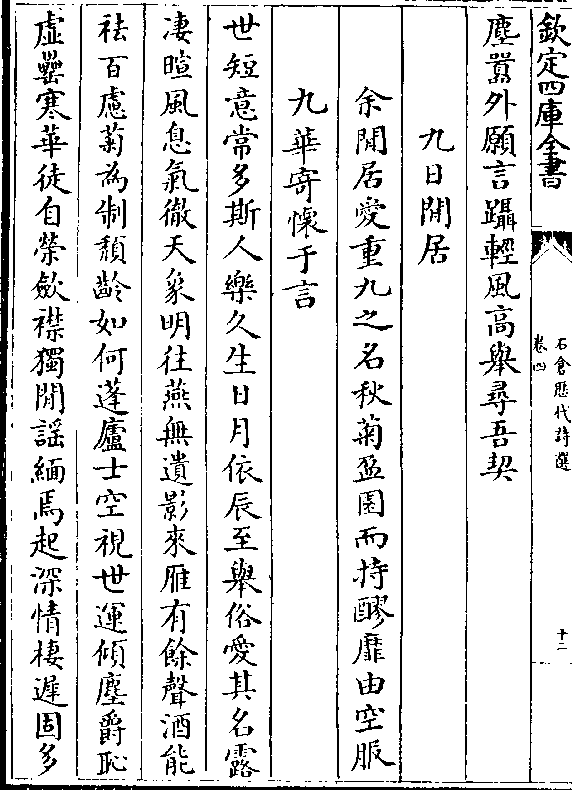 欽定四庫全書
石倉歷代詩選
卷四
十二
塵嚻外願言躡輕風高舉尋吾契
九日閒居
余閒居愛重九之名秋菊盈園而持醪靡由空服
九華寄懷于言
世短意常多斯人樂久生日月依辰至舉俗愛其名露
凄暄風息氣徹天象明徃燕無遺影來雁有餘聲酒能
祛百慮菊為制頽齡如何蓬廬士空視世運傾塵爵恥
虛罍寒華徒自榮斂襟獨閒謡緬焉起深情棲遲固多